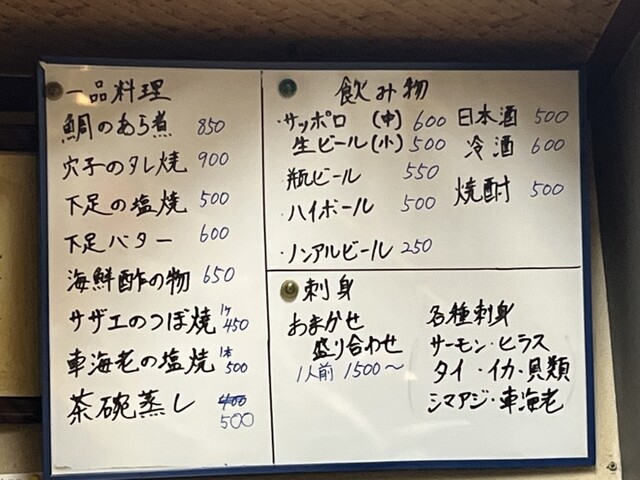 一品料理
鯛のあら煮 850
穴子のタレ焼 900
下足の塩焼 500
下足バター 600
海鮮酢の物 650
サザエのつぼ焼 1ケ 450
車海老の塩焼 1本 500
茶碗蒸し 400 500
飲み物
・サッポロ生ビール (中) 600
(小) 500
・瓶ビール 550
・ハイボール 500
・ノンアルビール 250
日本酒 500
冷酒 600
焼酎 500
刺身
おまかせ
盛り合わせ
1人前 1500〜
各種刺身
サーモン・ヒラス
タイ・イカ・貝類
シマアジ・車海老